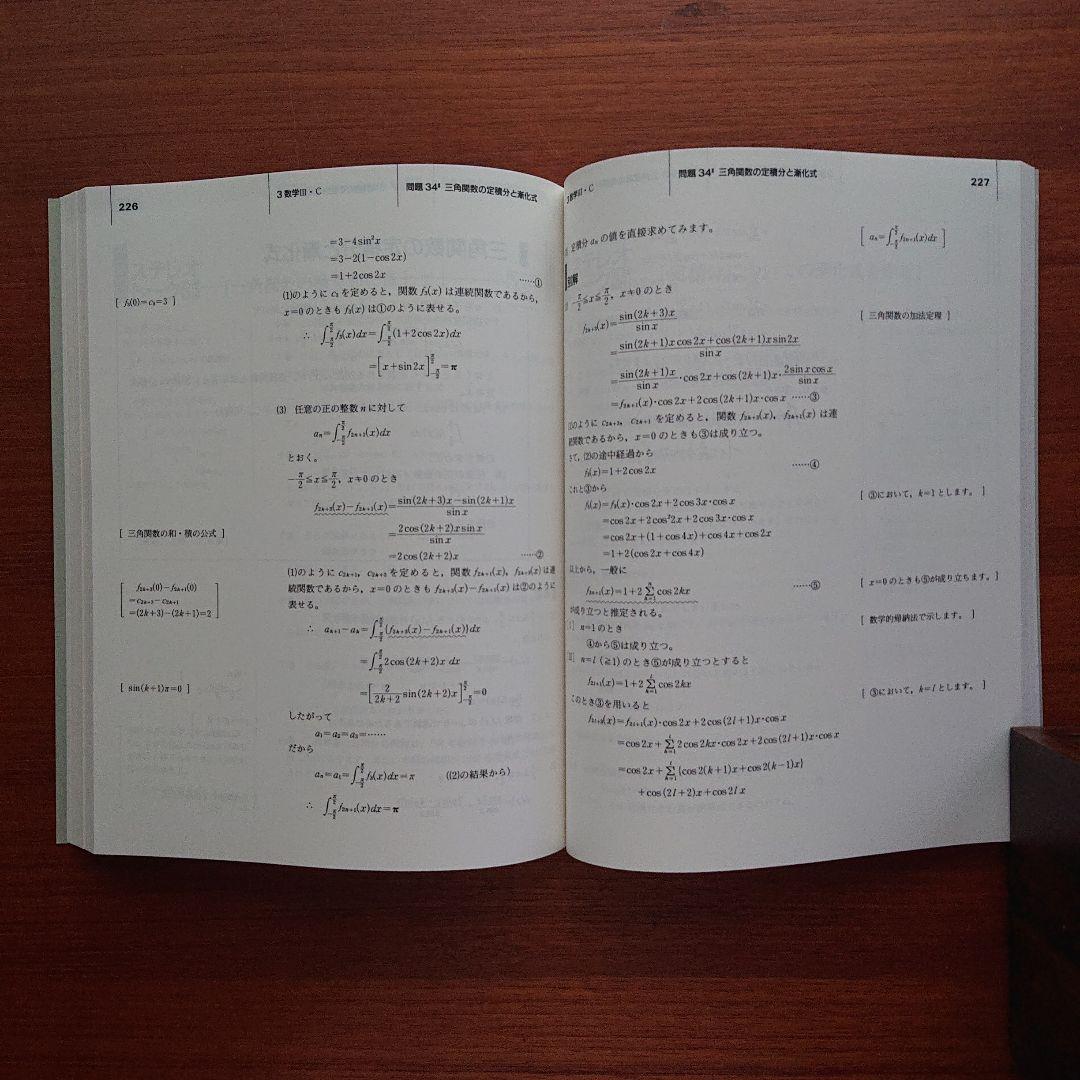 226
3 数学Ⅲ・C
問題 34 三角関数の定積分と漸化式
=3-4sin²x
=3-2(1-cos2x)
=1+2cos2x ……①
[ f₃(0)=c₃=3 ]
(1)のように c₃ を定めると，関数 f₃(x) は連続関数であるから，
x=0 のときも f₃(x) は①のように表せる。
∴ ∫_{-π/2}^{π/2} f₃(x)dx=∫_{-π/2}^{π/2}(1+2cos2x)dx
=[x+sin2x]_{-π/2}^{π/2}=π
(3) 任意の正の整数 n に対して
aₙ=∫_{-π/2}^{π/2} f_{2n+1}(x)dx
とおく。
-π/2≦x≦π/2，x≠0 のとき
f_{2k+3}(x)-f_{2k+1}(x)=(sin(2k+3)x-sin(2k+1)x)/sin x
[ 三角関数の和・積の公式 ]
=(2cos(2k+2)x sin x)/sin x
=2cos(2k+2)x ……②
(1)のように c_{2k+1}，c_{2k+3} を定めると，関数 f_{2k+1}(x)，f_{2k+3}(x) は連
続関数であるから，x=0 のときも f_{2k+3}(x)-f_{2k+1}(x) は②のように
表せる。
[ f_{2k+3}(0)-f_{2k+1}(0)
=c_{2k+3}-c_{2k+1}
=(2k+3)-(2k+1)=2 ]
∴ a_{k+1}-a_k=∫_{-π/2}^{π/2}{f_{2k+3}(x)-f_{2k+1}(x)}dx
=∫_{-π/2}^{π/2}2cos(2k+2)x dx
[ sin(k+1)π=0 ]
=[2/(2k+2) sin(2k+2)x]_{-π/2}^{π/2}=0
したがって
a₁=a₂=a₃=……
だから
aₙ=a₁=∫_{-π/2}^{π/2} f₃(x)dx=π ((2)の結果から)
∴ ∫_{-π/2}^{π/2} f_{2n+1}(x)dx=π
3 数学Ⅲ・C
問題 34 三角関数の定積分と漸化式
227
定積分 aₙ の値を直接求めてみます。
[ aₙ=∫_{-π/2}^{π/2} f_{2n+1}(x)dx ]
別解
-π/2≦x≦π/2，x≠0 のとき
f_{2k+3}(x)=sin(2k+3)x/sin x
[ 三角関数の加法定理 ]
=(sin(2k+1)x cos2x+cos(2k+1)x sin2x)/sin x
=sin(2k+1)x/sin x・cos2x+cos(2k+1)x・2sin x cos x/sin x
=f_{2k+1}(x)・cos2x+2cos(2k+1)x・cos x ……③
(1)のように c_{2k+3}，c_{2k+1} を定めると，関数 f_{2k+3}(x)，f_{2k+1}(x) は連
続関数であるから，x=0 のときも③は成り立つ。
さて，(2)の途中経過から
f₃(x)=1+2cos2x ……④
これと③から
[ ③において，k=1 とします。 ]
f₅(x)=f₃(x)・cos2x+2cos3x・cos x
=cos2x+2cos²2x+2cos3x・cos x
=cos2x+(1+cos4x)+cos4x+cos2x
=1+2(cos2x+cos4x)
以上から，一般に
f_{2n+1}(x)=1+2∑_{k=1}^{n}cos2kx ……⑤
[ x=0 のときも⑤が成り立ちます。]
が成り立つと推定される。
[ 数学的帰納法で示します。 ]
[Ⅰ] n=1 のとき
④から⑤は成り立つ。
[Ⅱ] n=l (≧1) のとき⑤が成り立つとすると
f_{2l+1}(x)=1+2∑_{k=1}^{l}cos2kx
このとき③を用いると
[ ③において，k=l とします。 ]
f_{2l+3}(x)=f_{2l+1}(x)・cos2x+2cos(2l+1)x・cos x
=cos2x+∑_{k=1}^{l}2cos2kx・cos2x+2cos(2l+1)x・cos x
=cos2x+∑_{k=1}^{l}{cos2(k+1)x+cos2(k-1)x}
+cos(2l+2)x+cos2lx